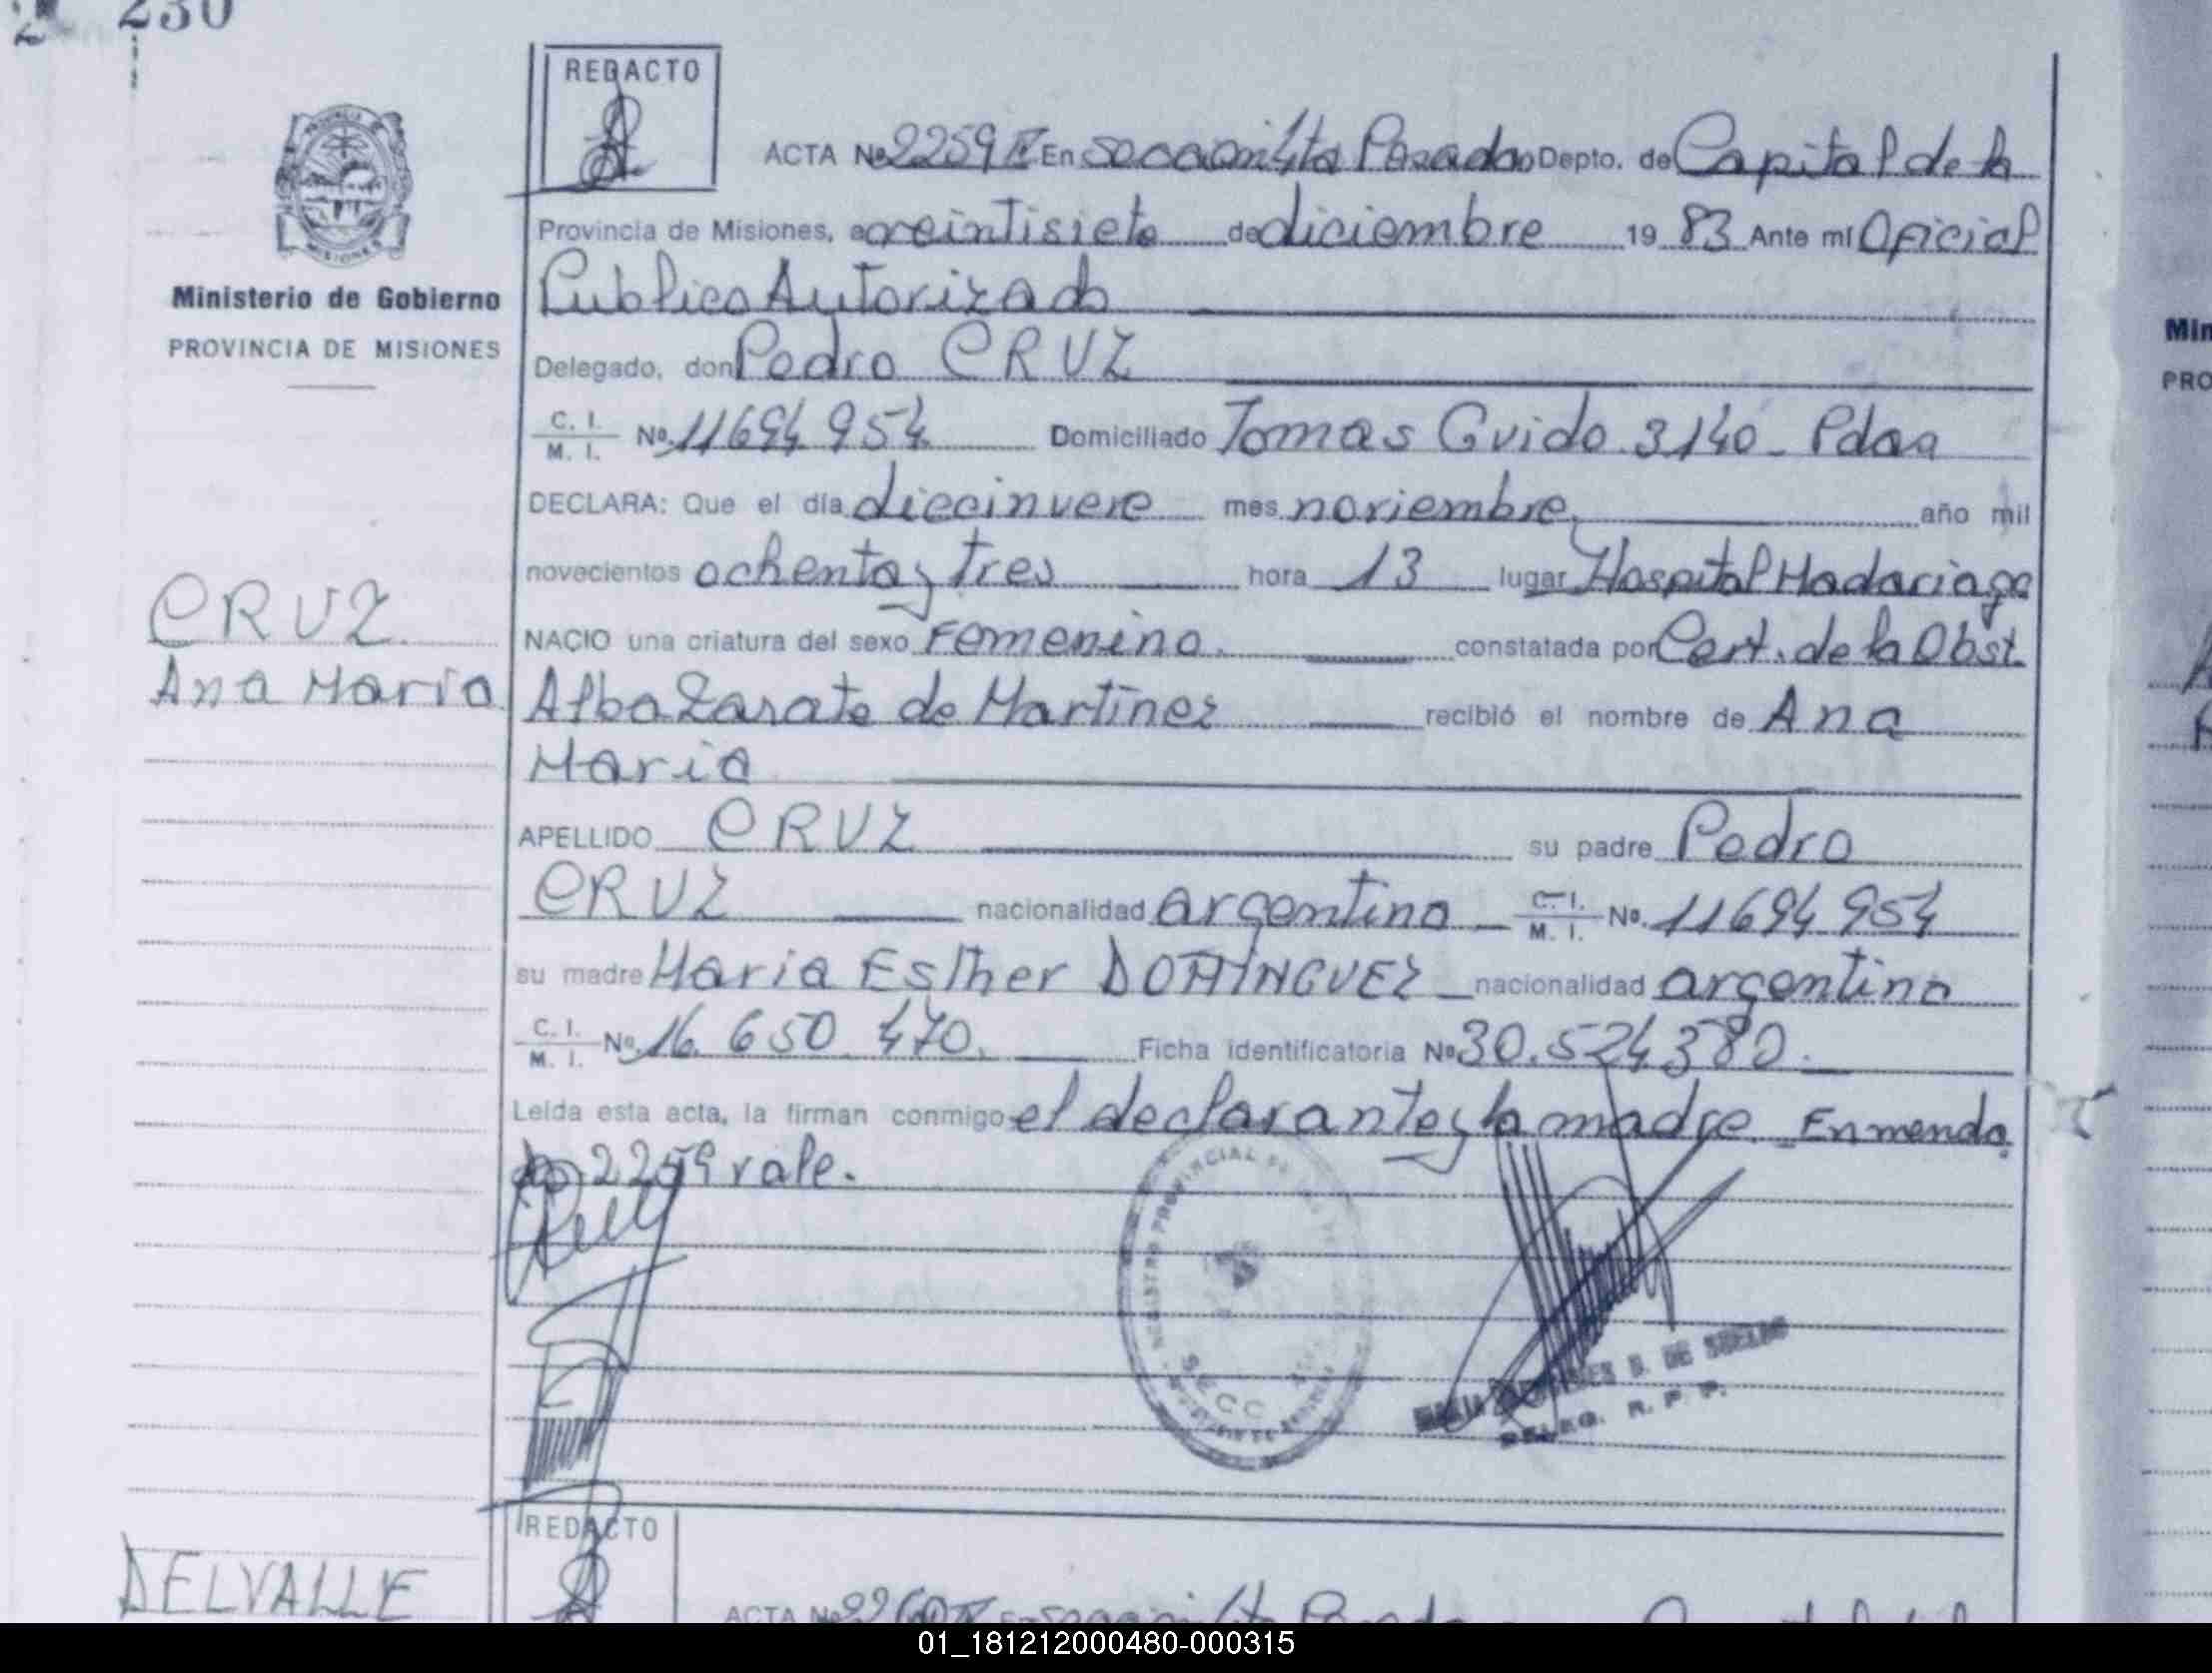 230
REDACTO
ACTA Nº 2259 En Posadas Depto. de Capital de la
Provincia de Misiones, a veintisiete de diciembre 19 83 Ante mí Oficial
Publico Autorizado
Ministerio de Gobierno
PROVINCIA DE MISIONES
Delegado, don Pedro CRUZ
C. I.
M. I. Nº. 11694 954 Domiciliado Tomas Guido 3140 - Pdas
DECLARA: Que el día diecinueve mes noviembre, año mil
novecientos ochenta y tres hora 13 lugar Hospital Madariaga
CRUZ
NACIO una criatura del sexo Femenino. constatada por Cert. de la Obst
Ana Maria
Alba Zarate de Martinez recibió el nombre de Ana
Maria
APELLIDO CRUZ su padre Pedro
CRUZ nacionalidad argentino C. I.
M. I. Nº. 11694 954
su madre Maria Esther DOMINGUEZ nacionalidad argentina
C. I.
M. I. Nº. 16. 650. 470. Ficha identificatoria Nº 30.524380.
Leída esta acta, la firman conmigo el declarante y la madre. Enmenda
do 2259 vale.
SECC
DE
DELEG. R. P. P.
REDACTO
DELVALLE
ACTA Nº 2260
Min
PRO
01_181212000480-000315